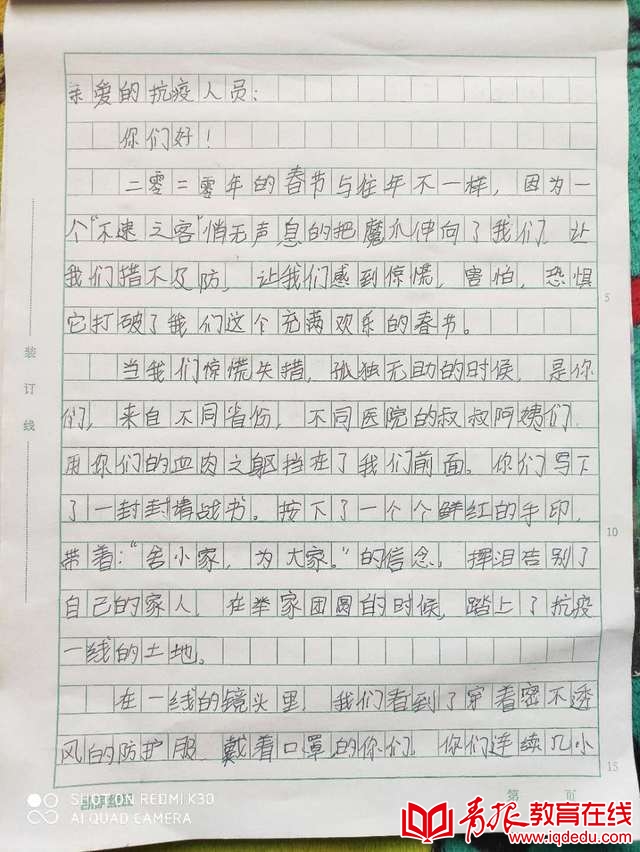 亲爱的抗疫人员：
你们好！
二零二零年的春节与往年不一样，因为一
个“不速之客”悄无声息的把魔爪伸向了我们，让
我们措不及防，让我们感到惊慌，害怕，恐惧
它打破了我们这个充满欢乐的春节。
当我们惊慌失措，孤独无助的时候，是你
们，来自不同省份，不同医院的叔叔阿姨们
用你们的血肉之躯挡在了我们前面。你们写下
了一封封请战书。按下了一个个鲜红的手印，
带着：“舍小家，为大家。”的信念，挥泪告别了
自己的家人，在举家团圆的时候，踏上了抗疫
一线的土地。
在一线的镜头里，我们看到了穿着密不透
风的防护服，戴着口罩的你们，你们连续几小
5
10
15
装订线
第 页
SHOT ON REDMI K30
AI QUAD CAMERA
青报教育在线
www.iqdedu.com